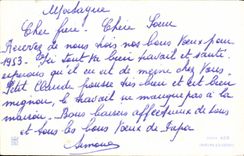 Mortagne
Cher frère. Chère Soeur
Recevez de nous trois nos bons Voeux pour
1953. Ici tout va bien travail et santé
espérons qu'il en est de même chez Vous.
Petit Claude pousse très bien et est bien
mignon, le travail ne manque pas à la
maison. Bons baisers affectueux de tous
et tous les bons Voeux de Papa
Simone